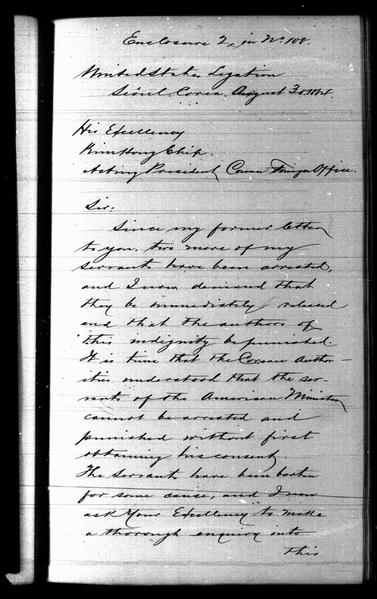 Enclosure 2, in No 108.
United States Legation
Seoul Corea, August 30. 1884.
His Excellency
Kim Hong Chip
Acting President Corean Foreign Office.
Sir:
Since my former letter
to you, two more of my
servants have been arrested,
and I now demand that
they be immediately released
and that the authors of
this indignity be punished.
It is time that the Corean Author-
ities understood that the ser-
vants of the American Minister
cannot be arrested and
punished without first
obtaining his consent.
The servants have been beaten
for some cause, and I now
ask Your Excellency to make
a thorough enquiry into
this